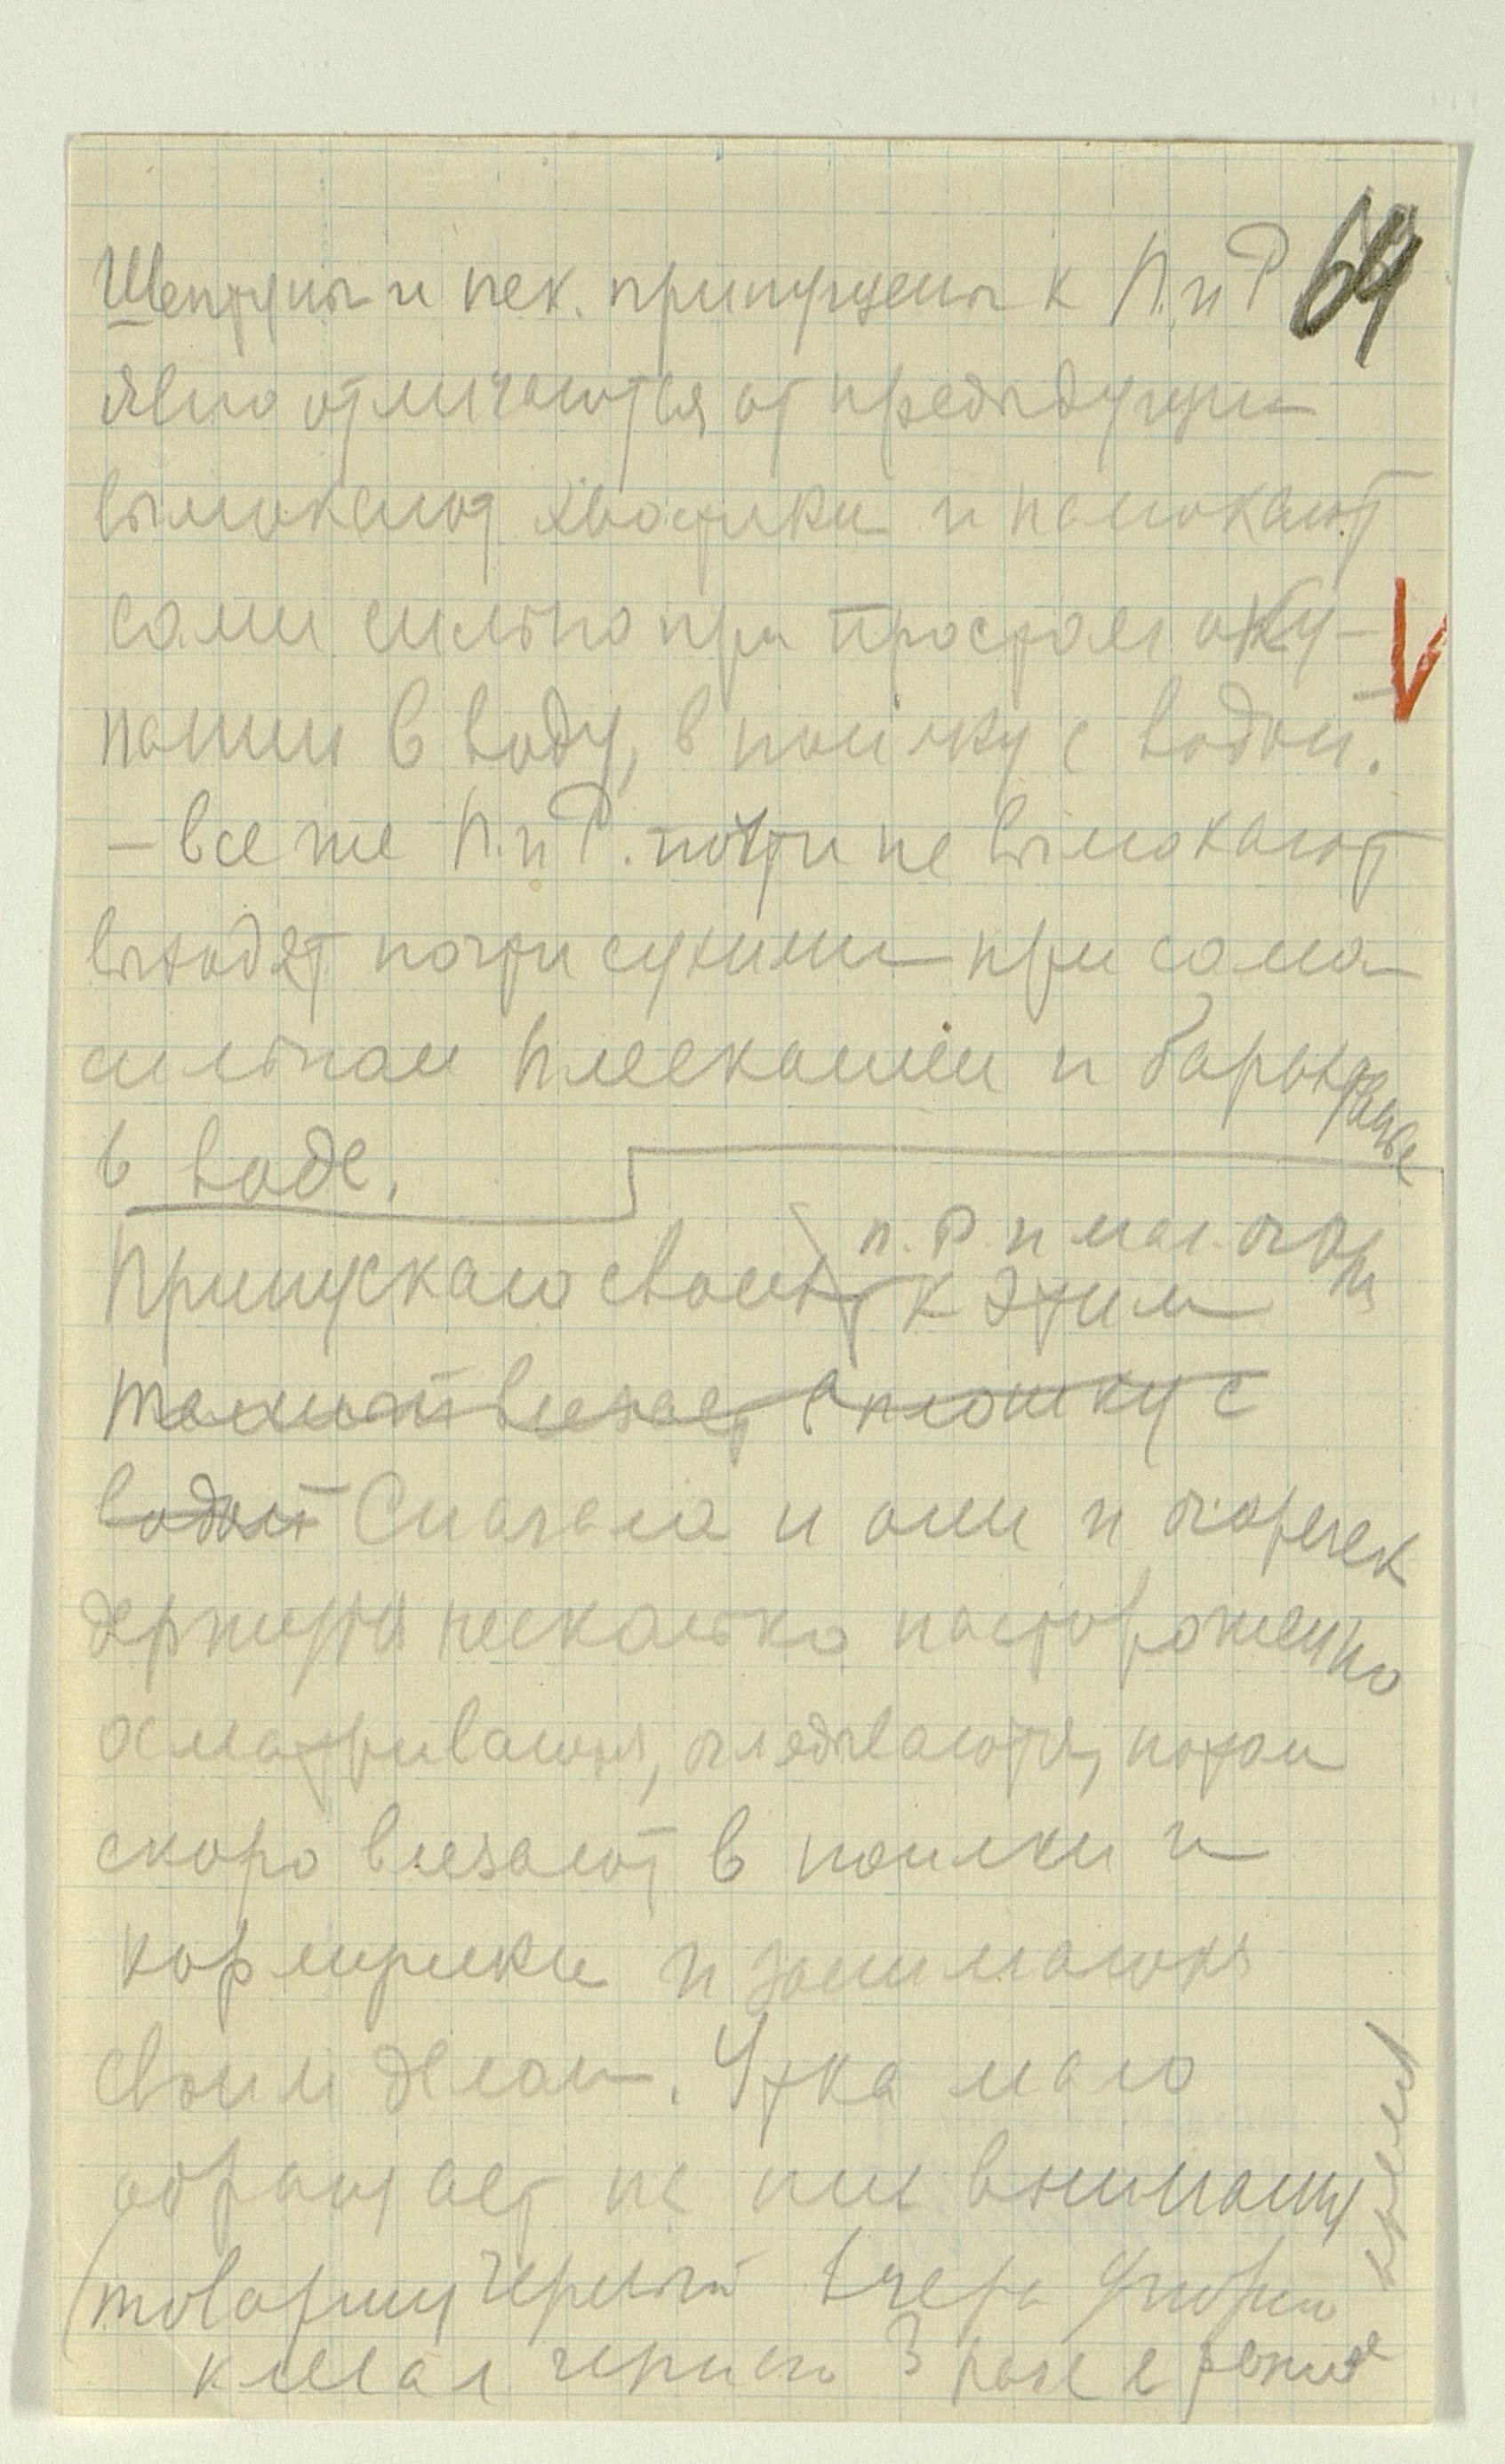 64
Шептуны и пек. припущены к П. и Р
явно отличаются от предыдущих
вымокают хвостики и намокают
сами сильно при простом оку-
нании в воду, в поилку с водой.
– все же П. и Р. почти не вымокают
выходят почти сухими при само
сильном плескании и барахтанье
в воде.
п. Р. и мал. огар
Припускаю своих к этим
в плошку с
водой Сначала и они и огарчек
держутся несколько настороженно
осматриваются, оглядываются, потом
скоро влезают в поилки и
кормушки и занимаются
своим делом. Утка мало
обращает на них внимания
(товарищ черный вчера упорно
клевал черныш 3 раза